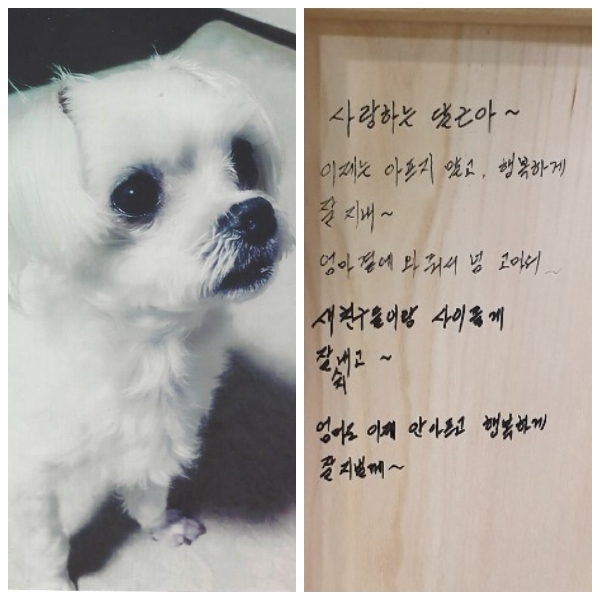 사랑하는 달근아~
이제는 아프지 말고, 행복하게
잘 지내~
엄마 곁에 와줘서 넘 고마워~
새친구들이랑 사이좋게
잘 내고 ~
지
엄마도 이제 안아프고 행복하게
잘지낼게~